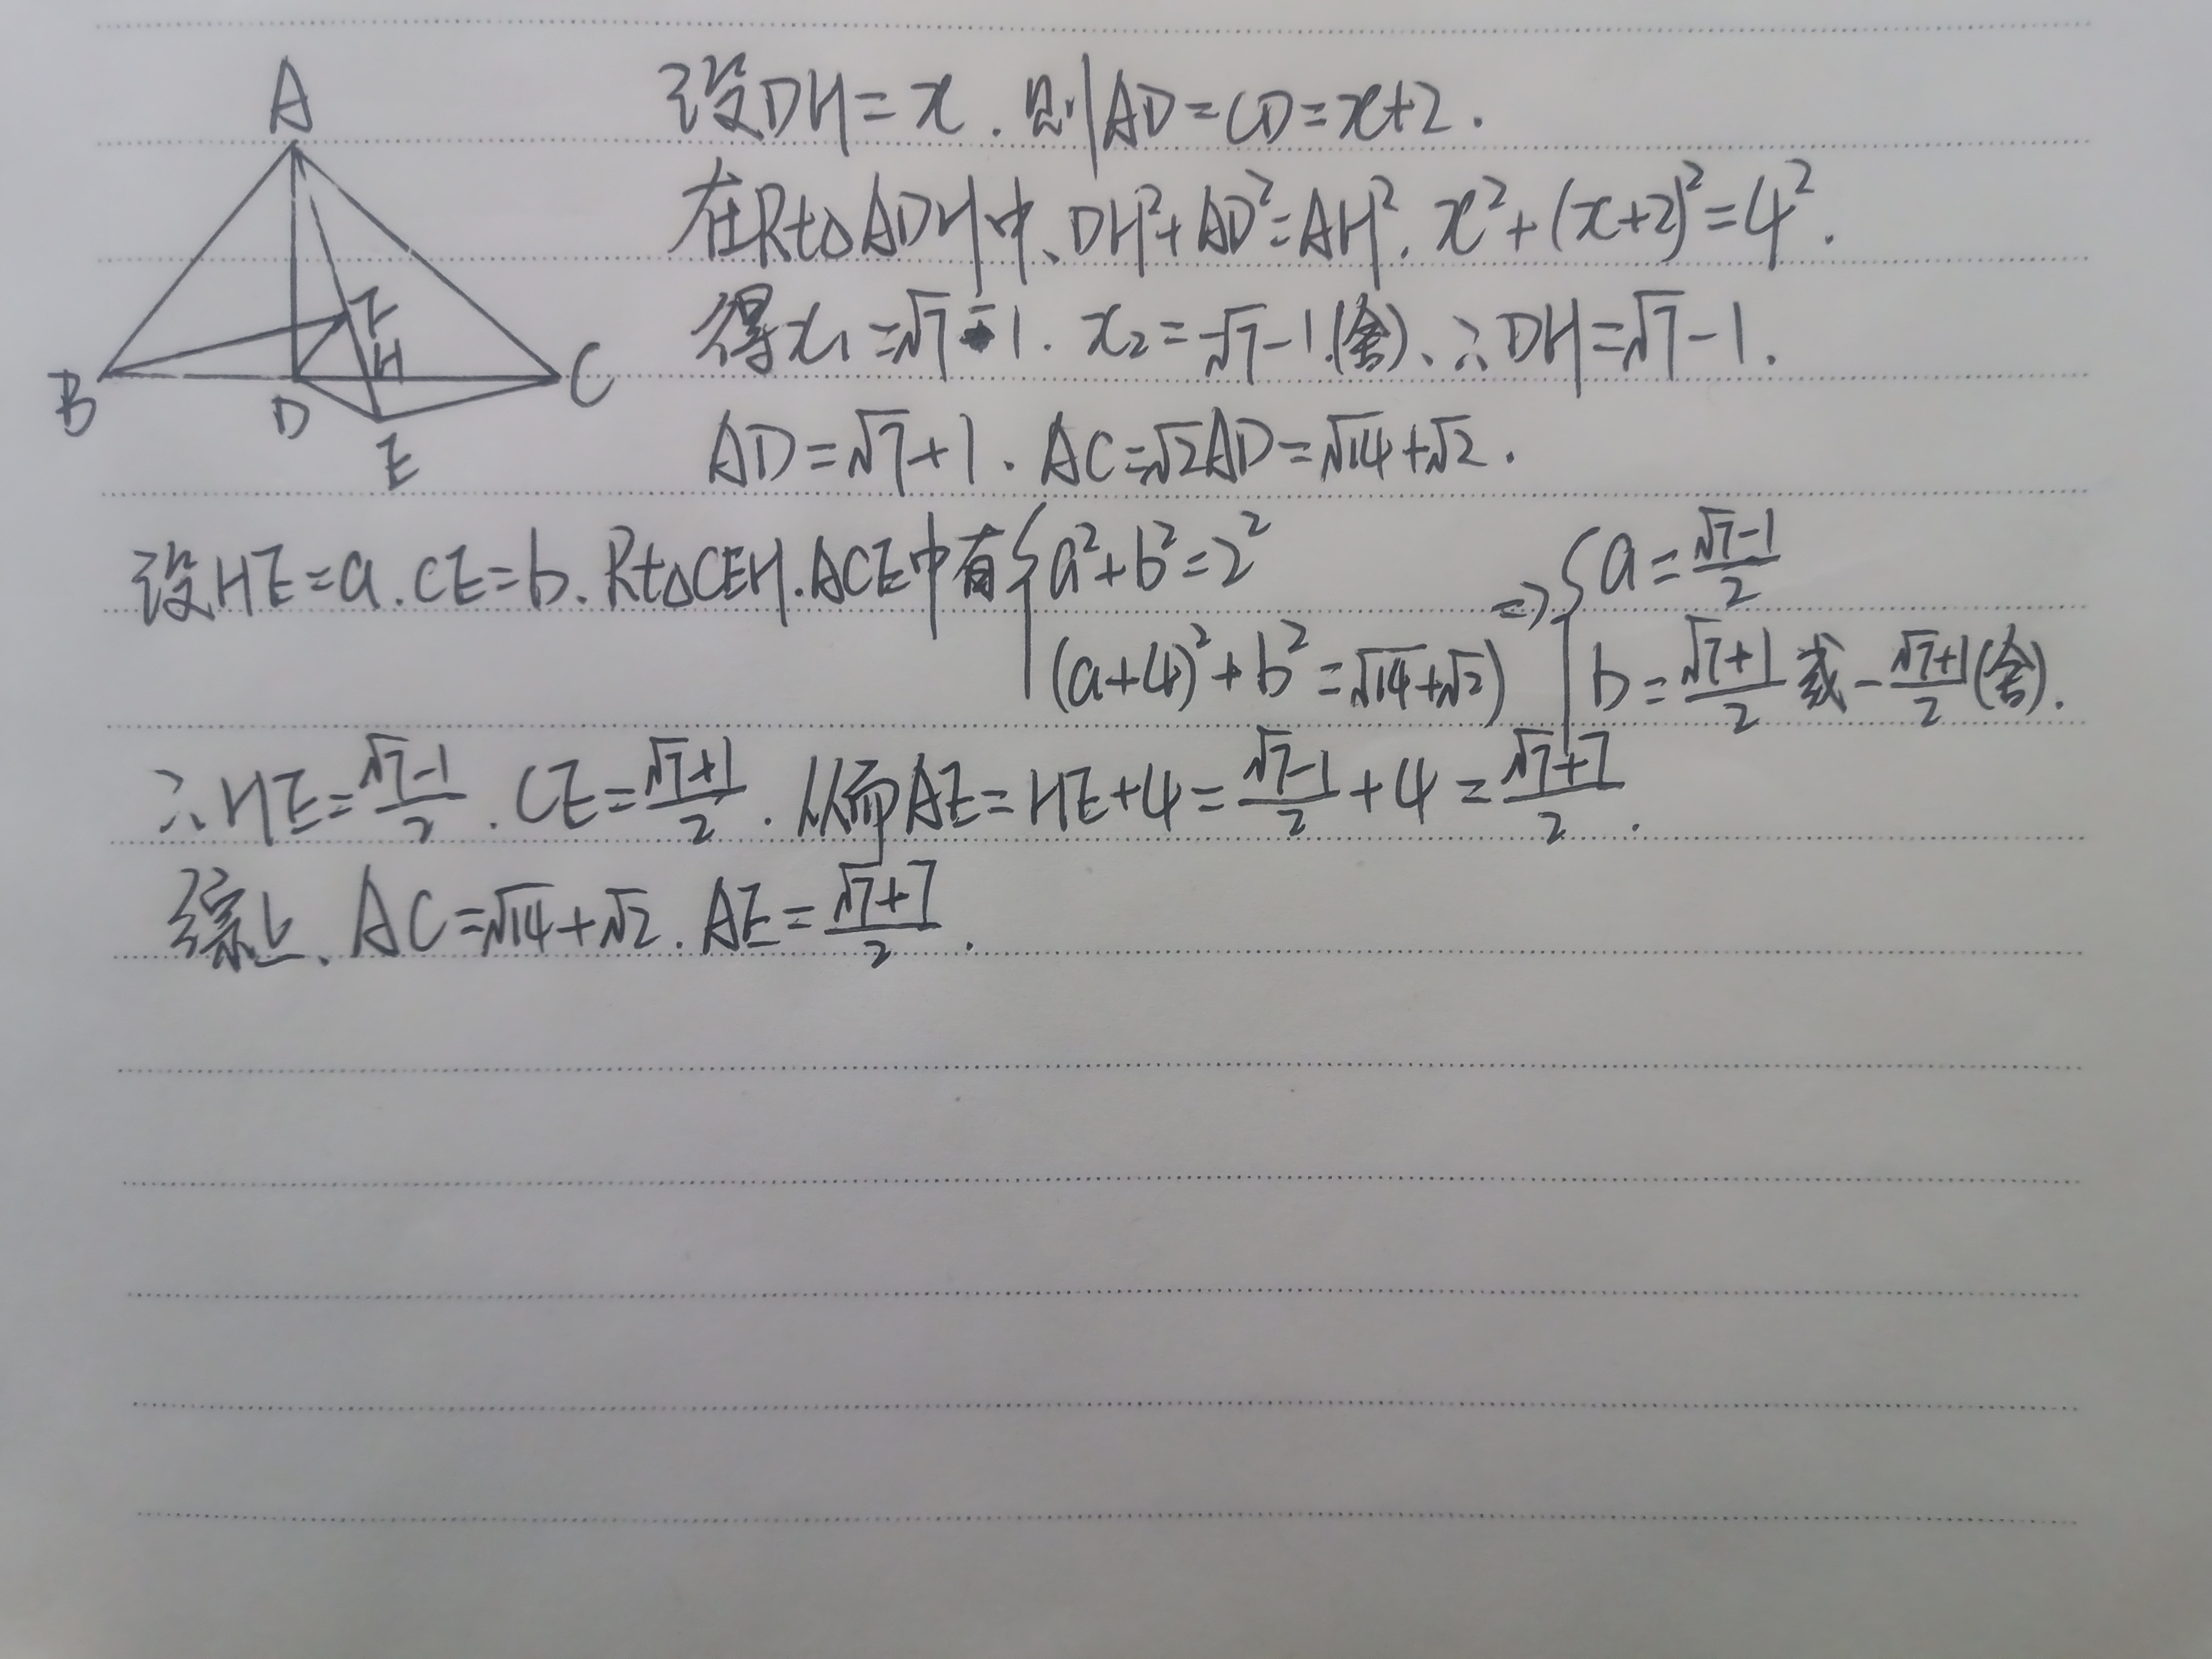 A
B
D
F
H
C
E
设DH=x.则AD=CD=x+2.
在Rt△ADH中、DH²+AD²=AH².x²+(x+2)²=4².
得x₁=√7-1.x₂=-√7-1.(舍)、∴DH=√7-1.
AD=√7+1.AC=√2AD=√14+√2.
设HE=a.CE=b.Rt△CEH.ACE中有{a²+b²=2² ⇒{a=(√7-1)/2
(a+4)²+b²=√14+√2) b=(√7+1)/2或-(√7+1)/2(舍).
∴HE=(√7-1)/2.CE=(√7+1)/2.从而AE=HE+4=(√7-1)/2+4=(√7+7)/2.
综上、AC=√14+√2.AE=(√7+7)/2.